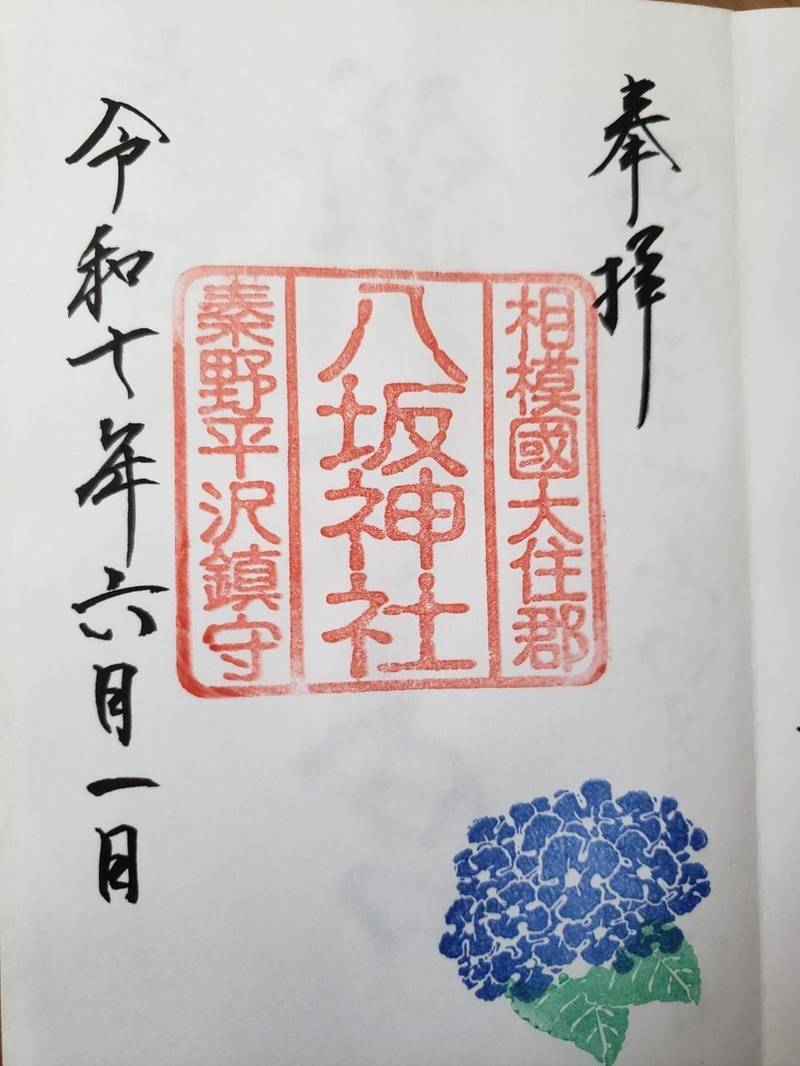 奉拝
相模國大住郡
八坂神社
秦野平沢鎮守
令和七年六月一日